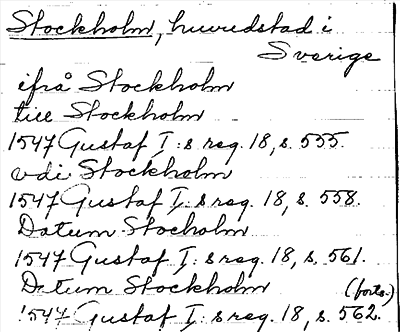 Stockholm, huvudstad i
Sverige
ifrå Stockholm
till Stockholm
1547 Gustaf I:s reg. 18, s. 555.
vdi Stockholm
1547 Gustaf I:s reg. 18, s. 558.
Datum Stocholm
1547 Gustaf I:s reg. 18, s. 561.
Datum Stockholm (forts.)
1547 Gustaf I:s reg. 18, s. 562.